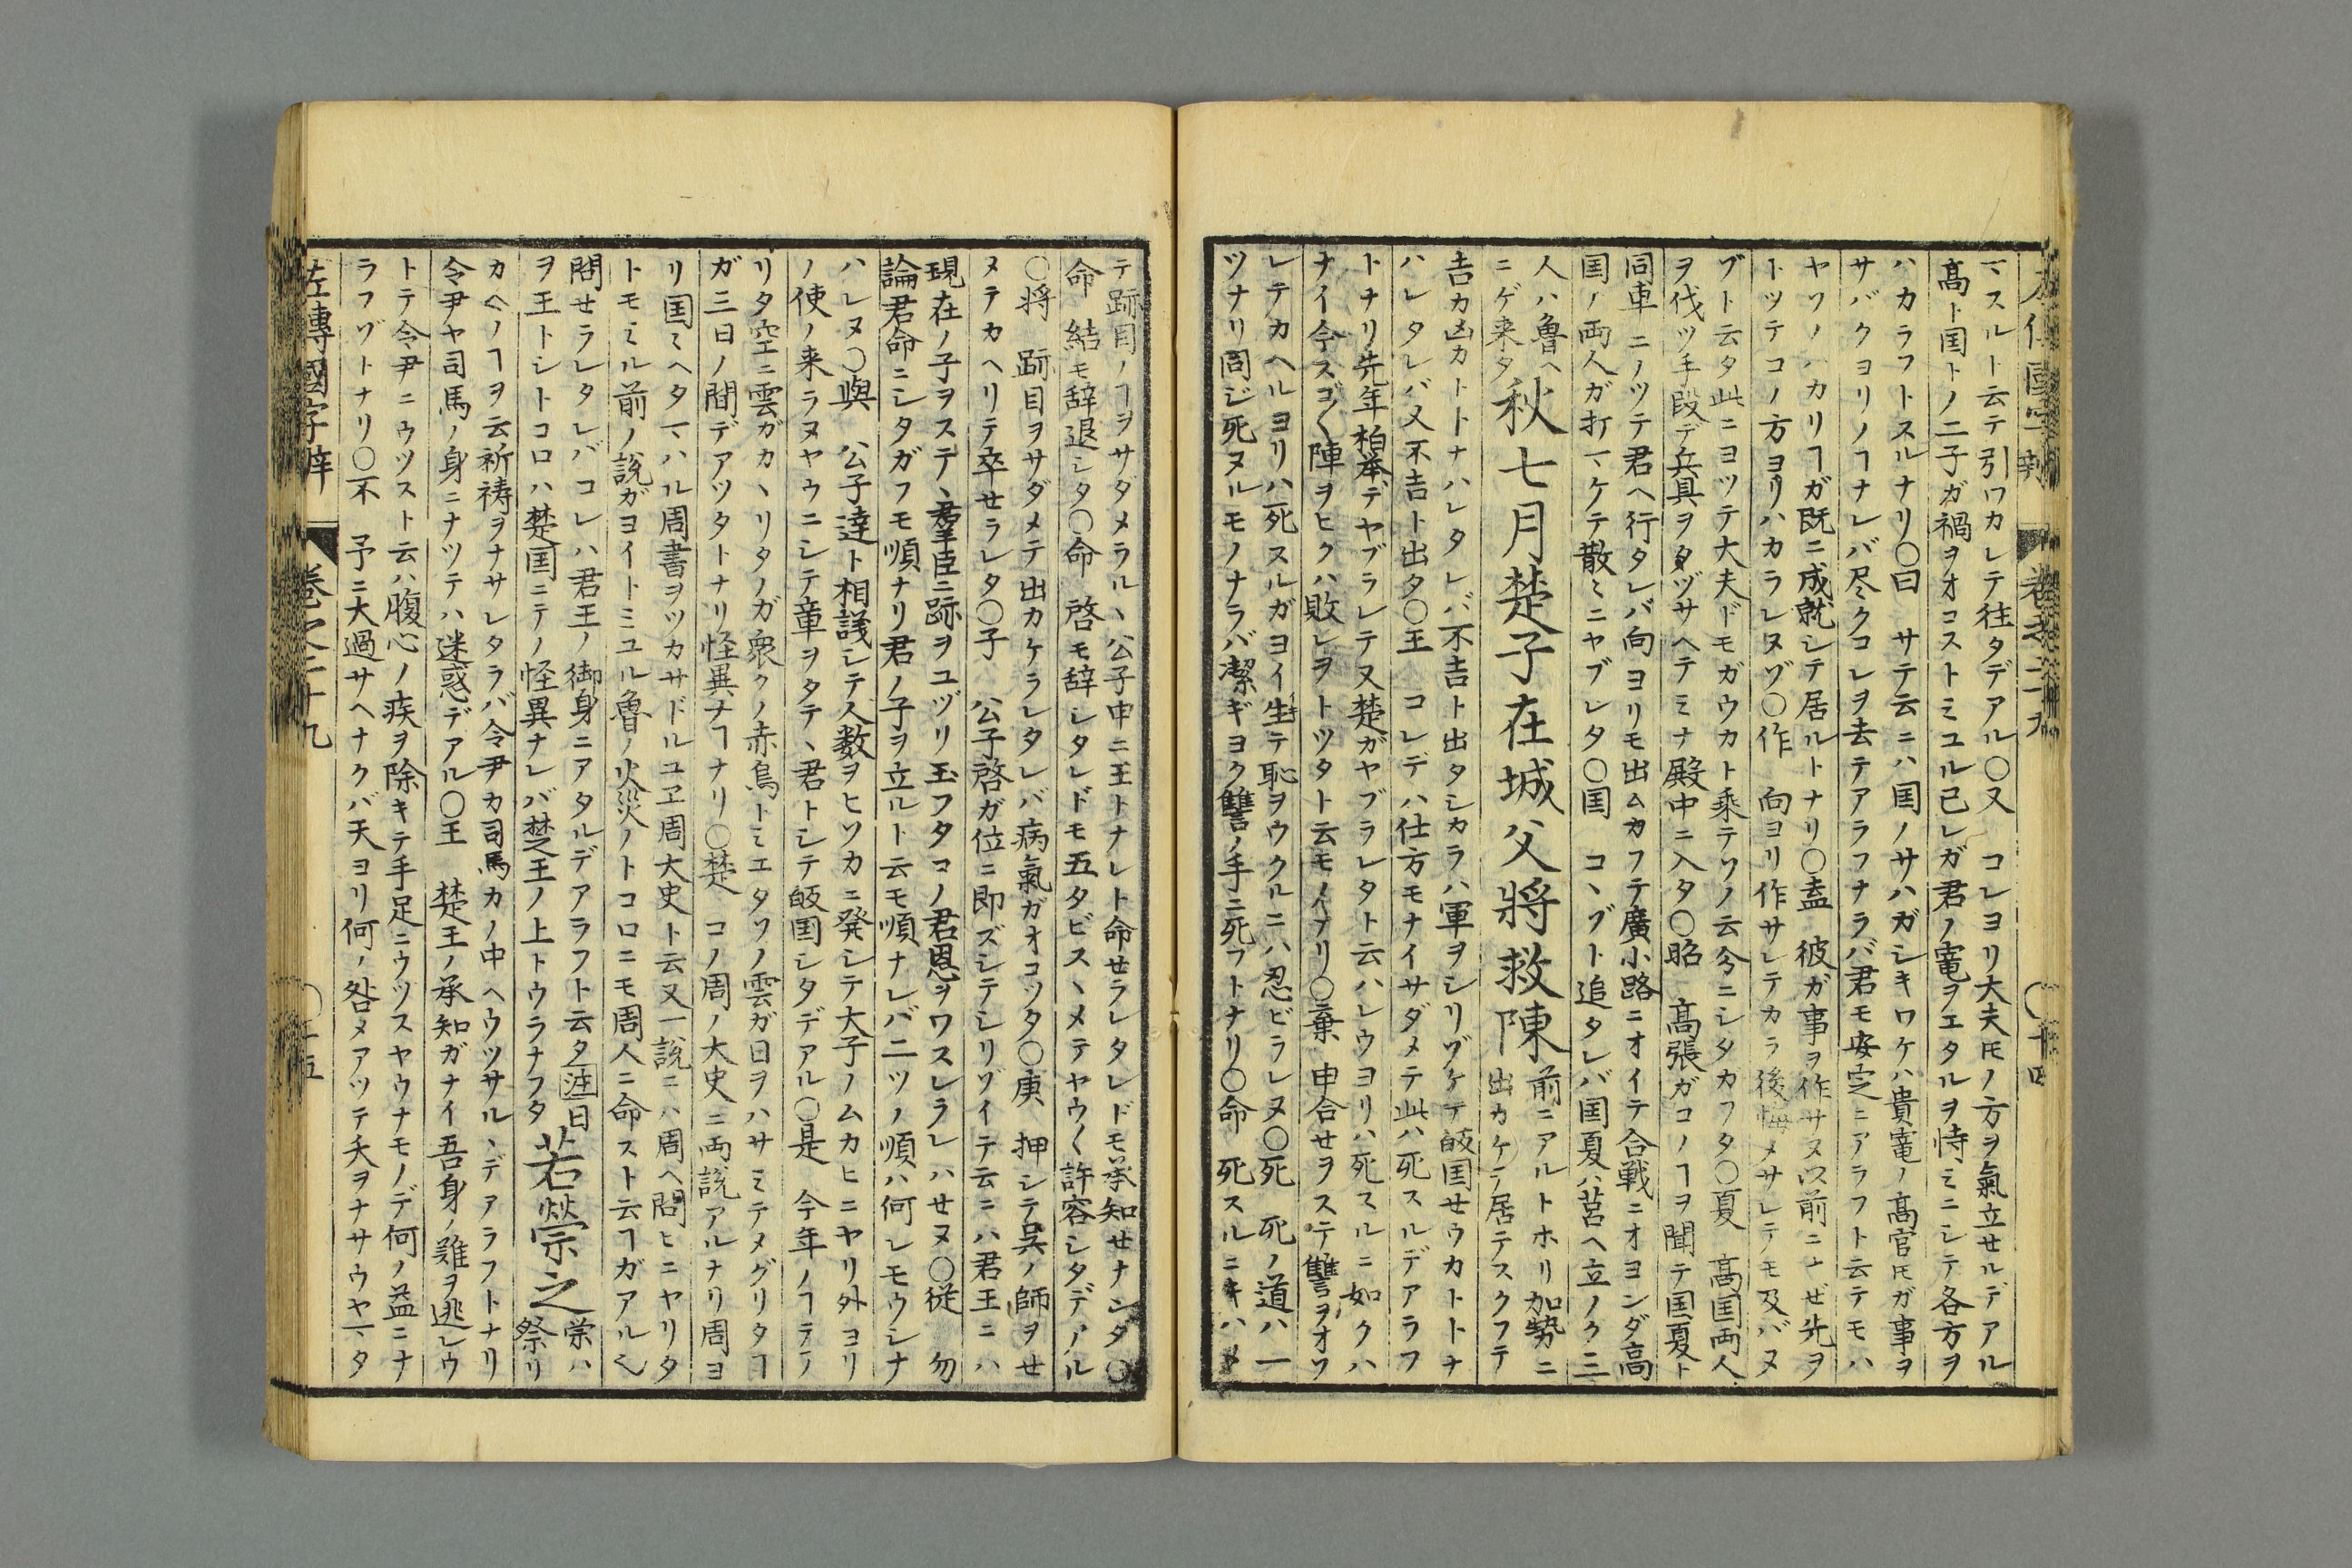 左傳國字辯 卷之二十九 ○十四
マスルト云テ引ワカレテ往タデアル〇又 コレヨリ大夫𪜈ノ方ヲ氣立セルデアル
髙ト国トノ二子ガ禍ヲオコストミユル己レガ君ノ寵ヲエタルヲ恃ミニシテ各方ヲ
ハカラフトスルナリ〇曰 サテ云ニハ国ノサハガシキワケハ貴寵ノ髙官𪜈ガ事ヲ
サバクヨリノヿナレバ尽クコレヲ去テアラフナラバ君モ安定ニアラフト云テモハ
ヤソノハカリヿガ既ニ成就シテ居ルトナリ〇盍 彼ガ事ヲ作サヌ以前ニナゼ先ヲ
トツテコノ方ヨリハカラレヌゾ〇作 向ヨリ作サレテカラ後悔メサレテモ及バヌ
ゾト云タ此ニヨツテ大夫ドモガウカト乘テソノ云今ニシタカフタ〇夏 髙国両人
ヲ伐ツ手段デ兵具ヲタヅサヘテミナ殿中ニ入タ〇昭 髙張ガコノヿヲ聞テ国夏ト
同車ニノツテ君ヘ行タレバ向ヨリモ出ムカフテ廣小路ニオイテ合戦ニオヨンダ髙
国ノ両人ガ打マケテ散〻ニヤブレタ〇国 コヽゾト追タレバ国夏ハ莒ヘ立ノク三
人ハ魯ヘ
ニゲ来タ
秋七月楚子在城父將救陳
前ニアルトホリ加勢ニ
出カケテ居テスクフテ
吉カ凶カトトナハレタレバ不吉ト出タシカラハ軍ヲシリゾケテ皈国セウカトトナ
ハレタレバ又不吉ト出タ〇王 コレデハ仕方モナイサダメテ此ハ死スルデアラフ
トナリ先年柏挙デヤブラレテ又楚ガヤブラレタト云ハレウヨリハ死スルニ如クハ
ナイ今スゴ〱陣ヲヒクハ敗レヲトツタト云モノナリ〇棄 申合セヲステ讐ヲオソ
レテカヘルヨリハ死スルガヨイ生テ恥ヲウクルニハ忍ビラレヌ〇死 死ノ道ハ一
ツナリ同ジ死ヌルモノナラバ潔ギヨク讐ノ手ニ死フトナリ〇命 死スルニキハメ
テ跡目ノヿヲサダメラルヽ公子申ニ王トナレト命セラレタレドモ承知セナンダ〇
命 結モ辞退シタ〇命 啓モ辞シタレドモ五タビスヽメテヤウ〱許容シタデアル
〇将 跡目ヲサダメテ出カケラレタレバ病氣ガオコツタ〇庚 押シテ呉ノ師ヲセ
メテカヘリテ卒セラレタ〇子 公子啓ガ位ニ即ズシテシリゾイテ云ニハ君王ニハ
現在ノ子ヲステヽ羣臣ニ跡ヲユヅリ玉フタコノ君恩ヲワスレラレハせヌ〇従 勿
論君命ニシタガフモ順ナリ君ノ子ヲ立ルト云モ順ナレバ二ツノ順ハ何レモウシナ
ハレヌ〇與 公子逹ト相議シテ人数ヲヒソカニ発シテ大子ノムカヒニヤリ外ヨリ
ノ使ノ来ラヌヤウニシテ章ヲタテヽ君トシテ皈国シタデアル〇是 今年ノヿテア
リタ空ニ雲ガカヽリタノガ衆クノ赤鳥トミエタソノ雲ガ日ヲハサミテメグリタヿ
ガ三日ノ間デアツタトナリ怪異ナヿナリ〇楚 コノ周ノ大史ニ両説アルナリ周ヨ
リ国〻ヘタマハル周書ヲツカサドルユヱ周大史ト云又一説ニハ周ヘ問ヒニヤリタ
トモミル前ノ説ガヨイトミユル魯ノ火災ノトコロニモ周人ニ命スト云ヿガアル〱
問せラレタレバコレハ君王ノ御身ニアタルデアラフト云タ注曰
ヲ王トシトコロハ楚国ニテノ怪異ナレバ楚王ノ上トウラナフタ
若禜之
禜ハ
祭リ
カヘノヿヲ云祈祷ヲナサレタラバ令尹カ司馬カノ中ヘウツサルヽデアラフトナリ
令尹ヤ司馬ノ身ニナツテハ迷惑デアル〇王 楚王ノ承知ガナイ吾身ノ難ヲ逃レウ
トテ令尹ニウツスト云ハ腹心ノ疾ヲ除キテ手足ニウツスヤウナモノデ何ノ益ニナ
ラフゾトナリ〇不 予ニ大過サヘナクバ天ヨリ何ノ咎メアツテ夭ヲナサウヤマタ
左傳國字辯 卷之二十九 ○十五